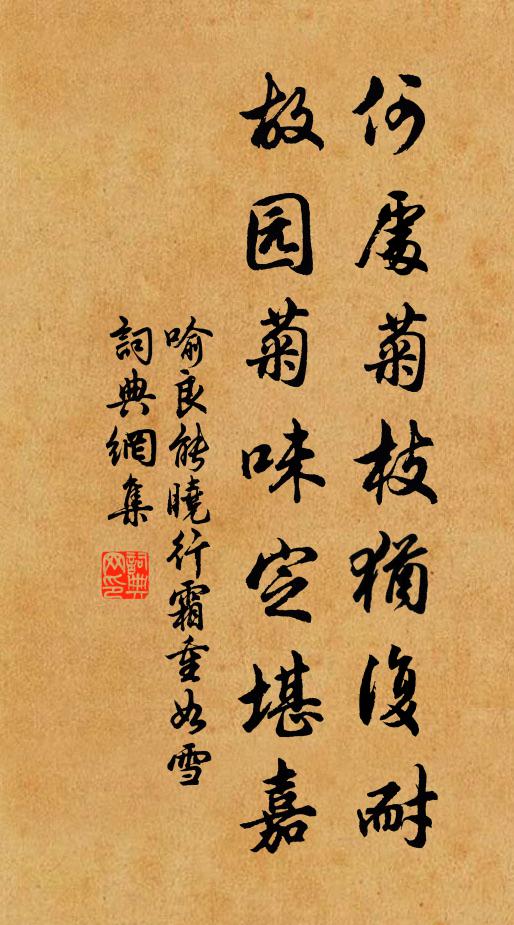 何處菊枝猶復耐
故园菊味定堪嘉
喻良能曉行霜重如雪
詞典網集
詞典網印